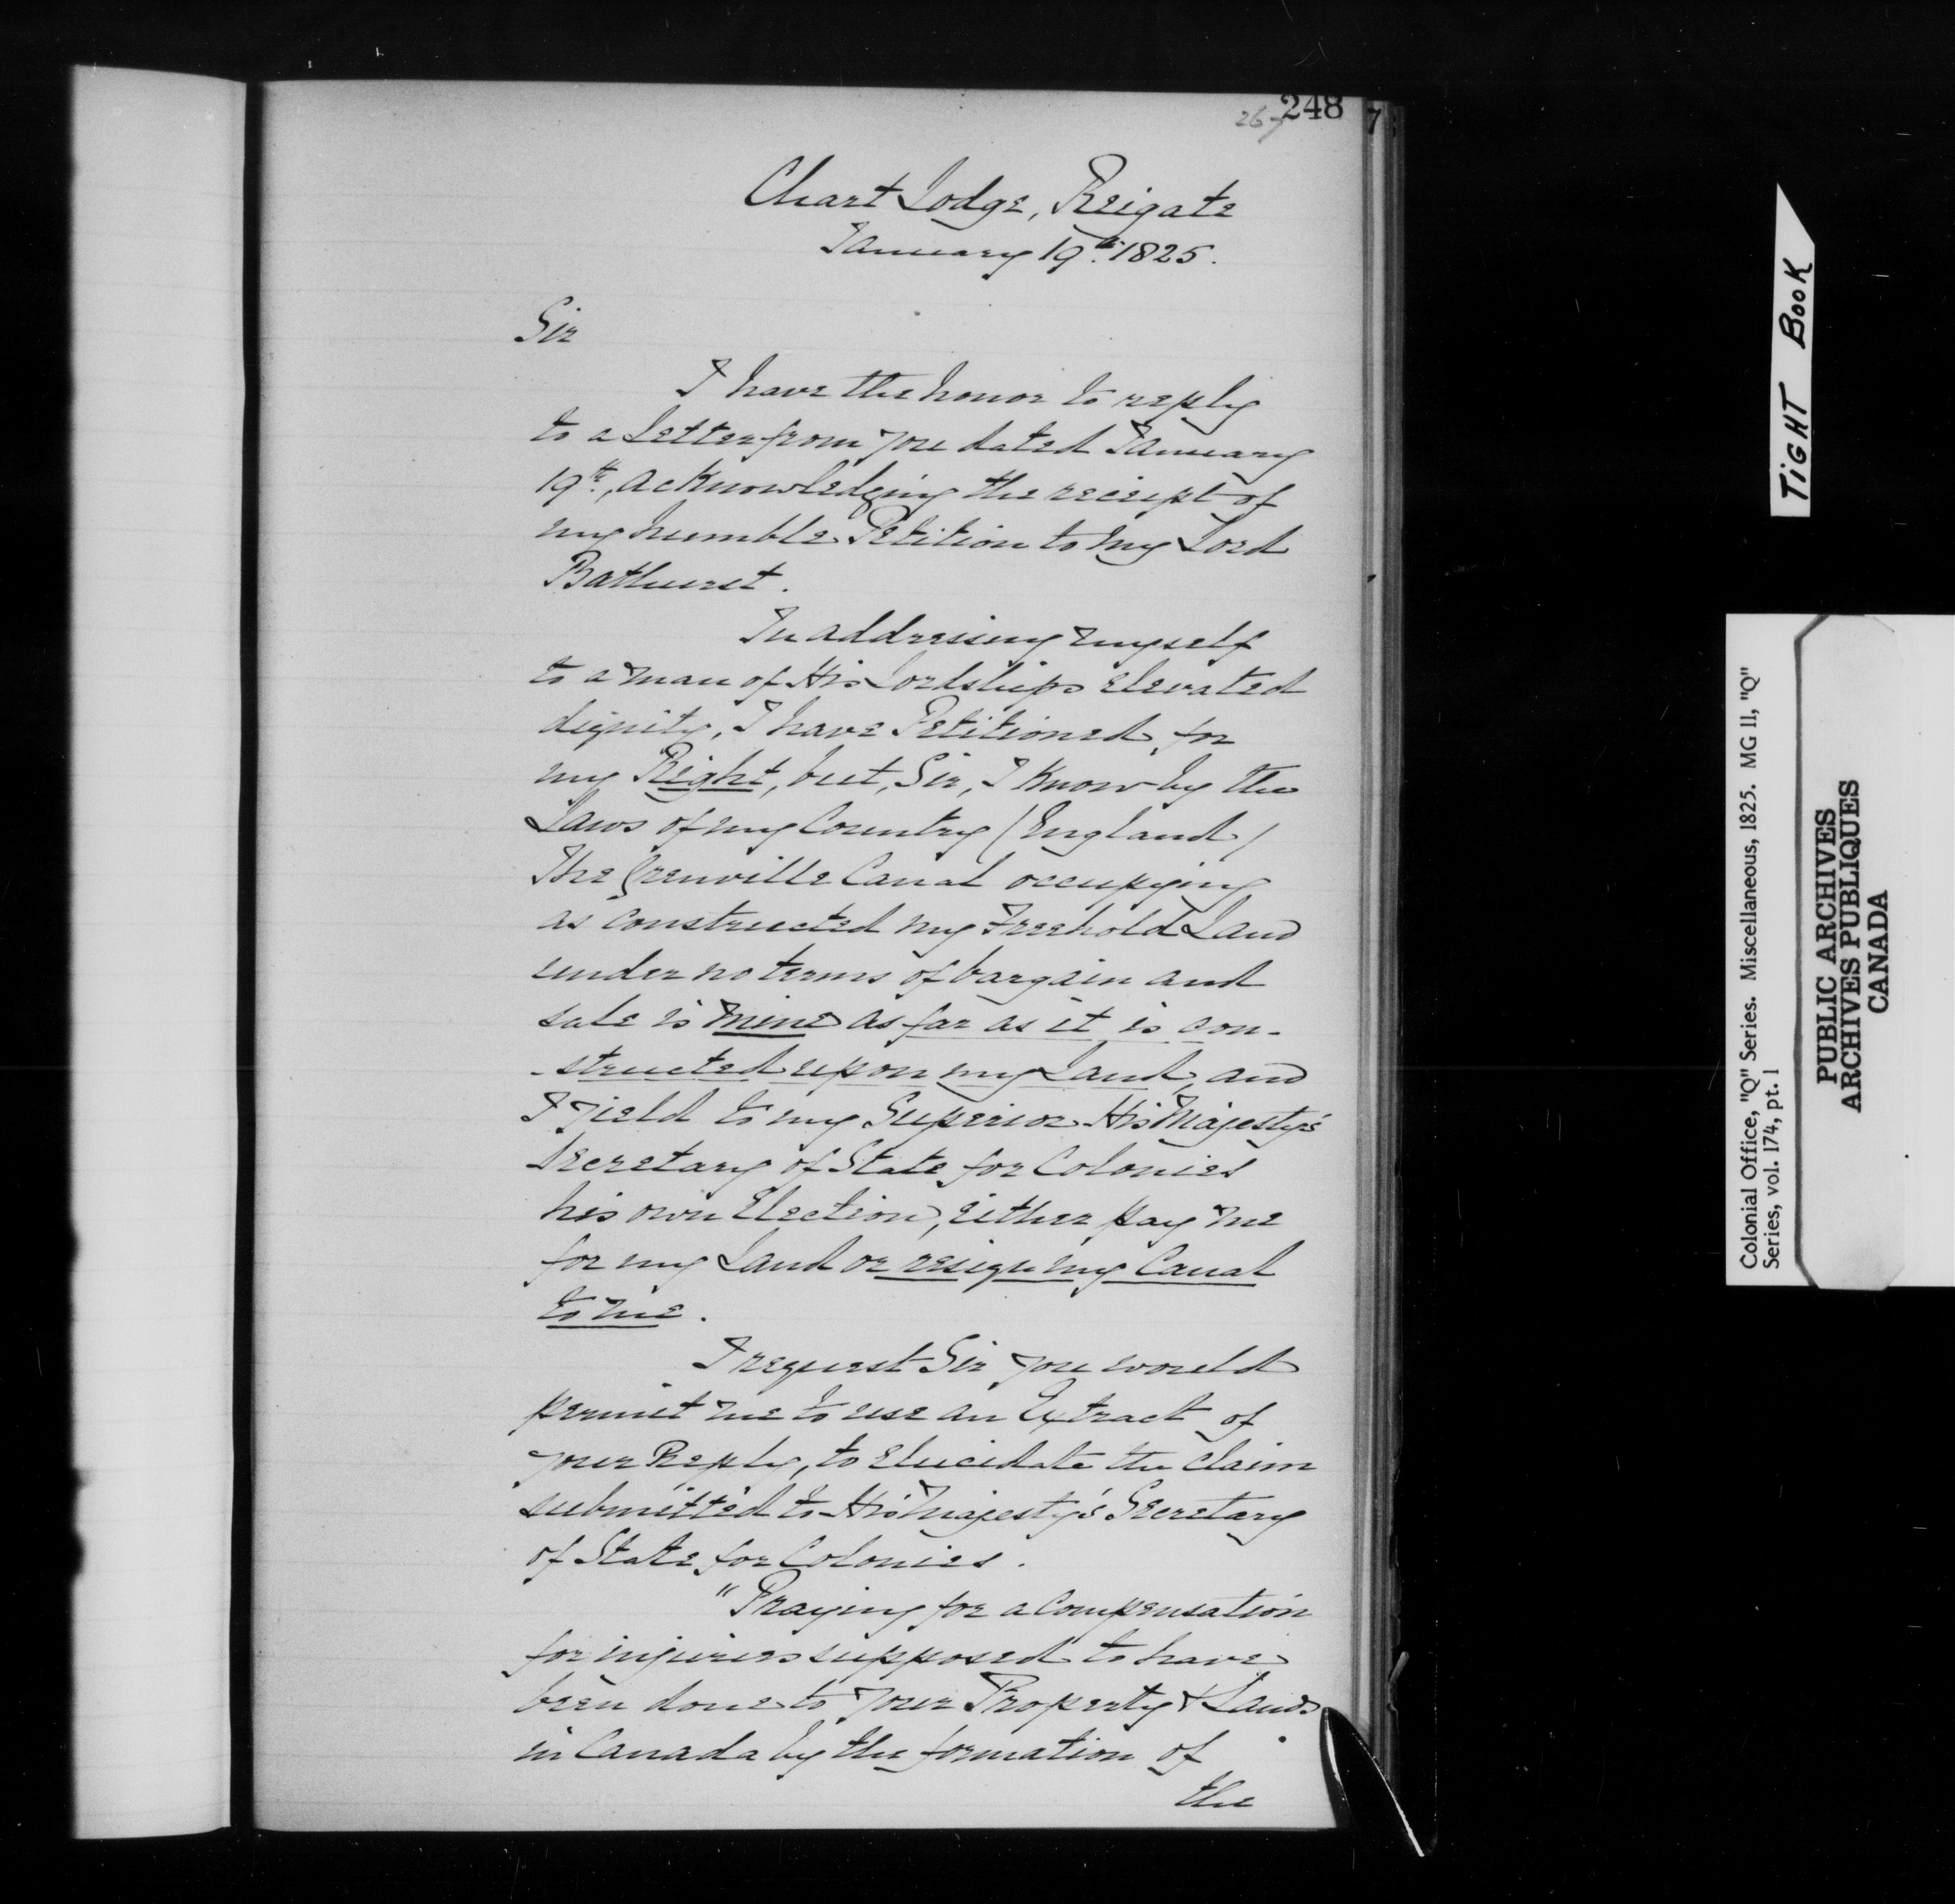 248
267
7
Chart Lodge, Reigate
January 19th. 1825.
Sir
I have the honor to reply
to a Letter from you dated January
19th., acknowledging the reciept of
my humble Petition to my Lord
Bathurst.
In addressing myself
to a man of His Lordships elevated
dignity, I have Petitioned for
my Right, but, Sir, I know by the
Laws of my Country (England)
The Grenville Canal occupying
as constructed my Freehold Land
under no terms of bargain and
sale is mine as far as it is con-
-structed upon my Land, and
I yield to my Superior His Majesty's
Secretary of State for Colonies
his own Election, either pay me
for my Land or resign my Canal
to me.
I request Sir you would
permit me to use an Extract of
your Reply, to elucidate the claim
submitted to His Majesty's Secretary
of State for Colonies.
"Praying for a Compensation
for injuries supposed to have
been done to your Property & Lands
in Canada by the formation of
the
TIGHT BOOK
Colonial Office, "Q" Series. Miscellaneous, 1825. MG 11, "Q"
Series, vol. 174, pt. 1
PUBLIC ARCHIVES
ARCHIVES PUBLIQUES
CANADA